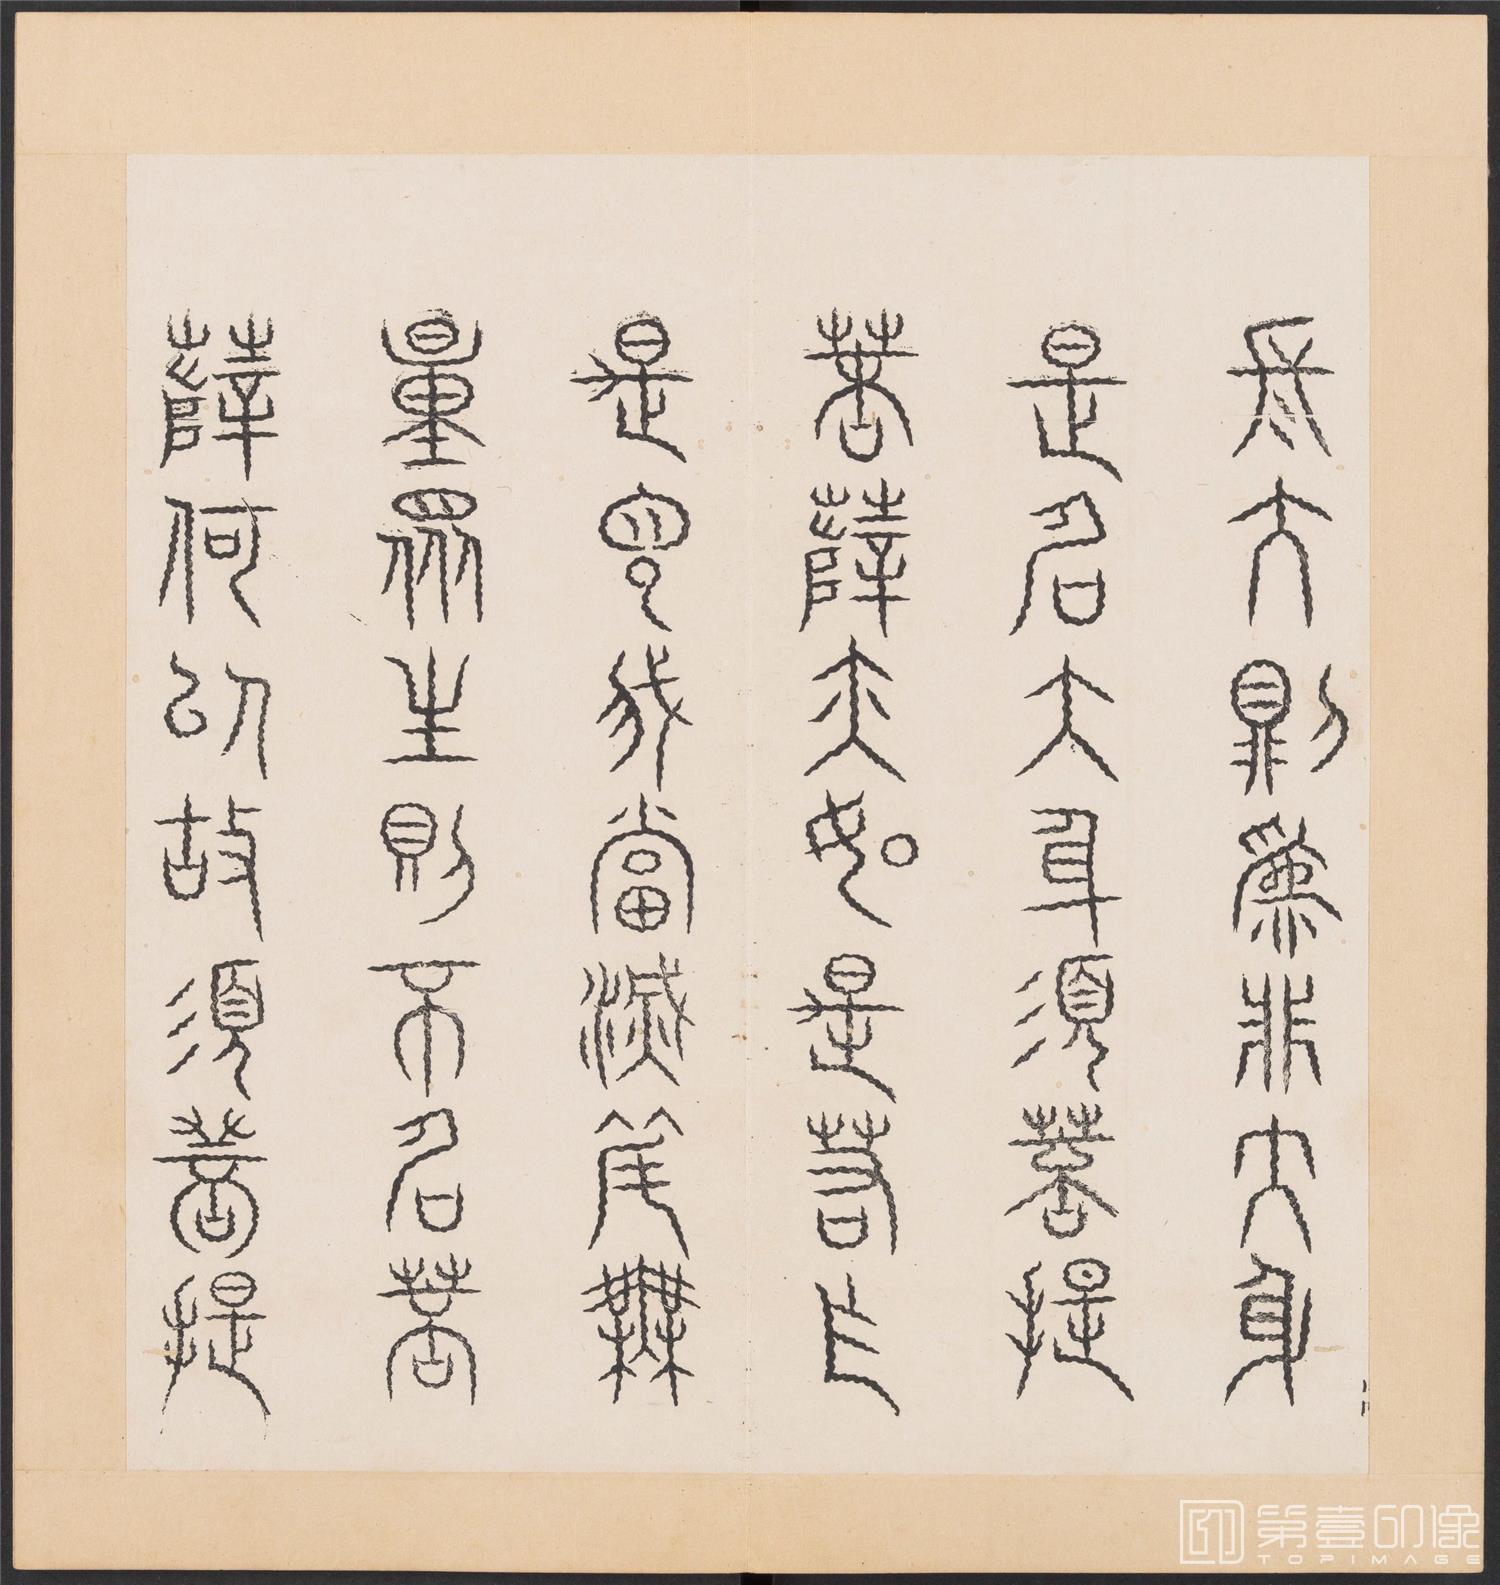 長大則為非大身
是名大身須菩提
菩薩亦如是若作
是言我當滅度無
量眾生則不名菩
薩何以故須菩提
第壹印像
TOPIMAGE